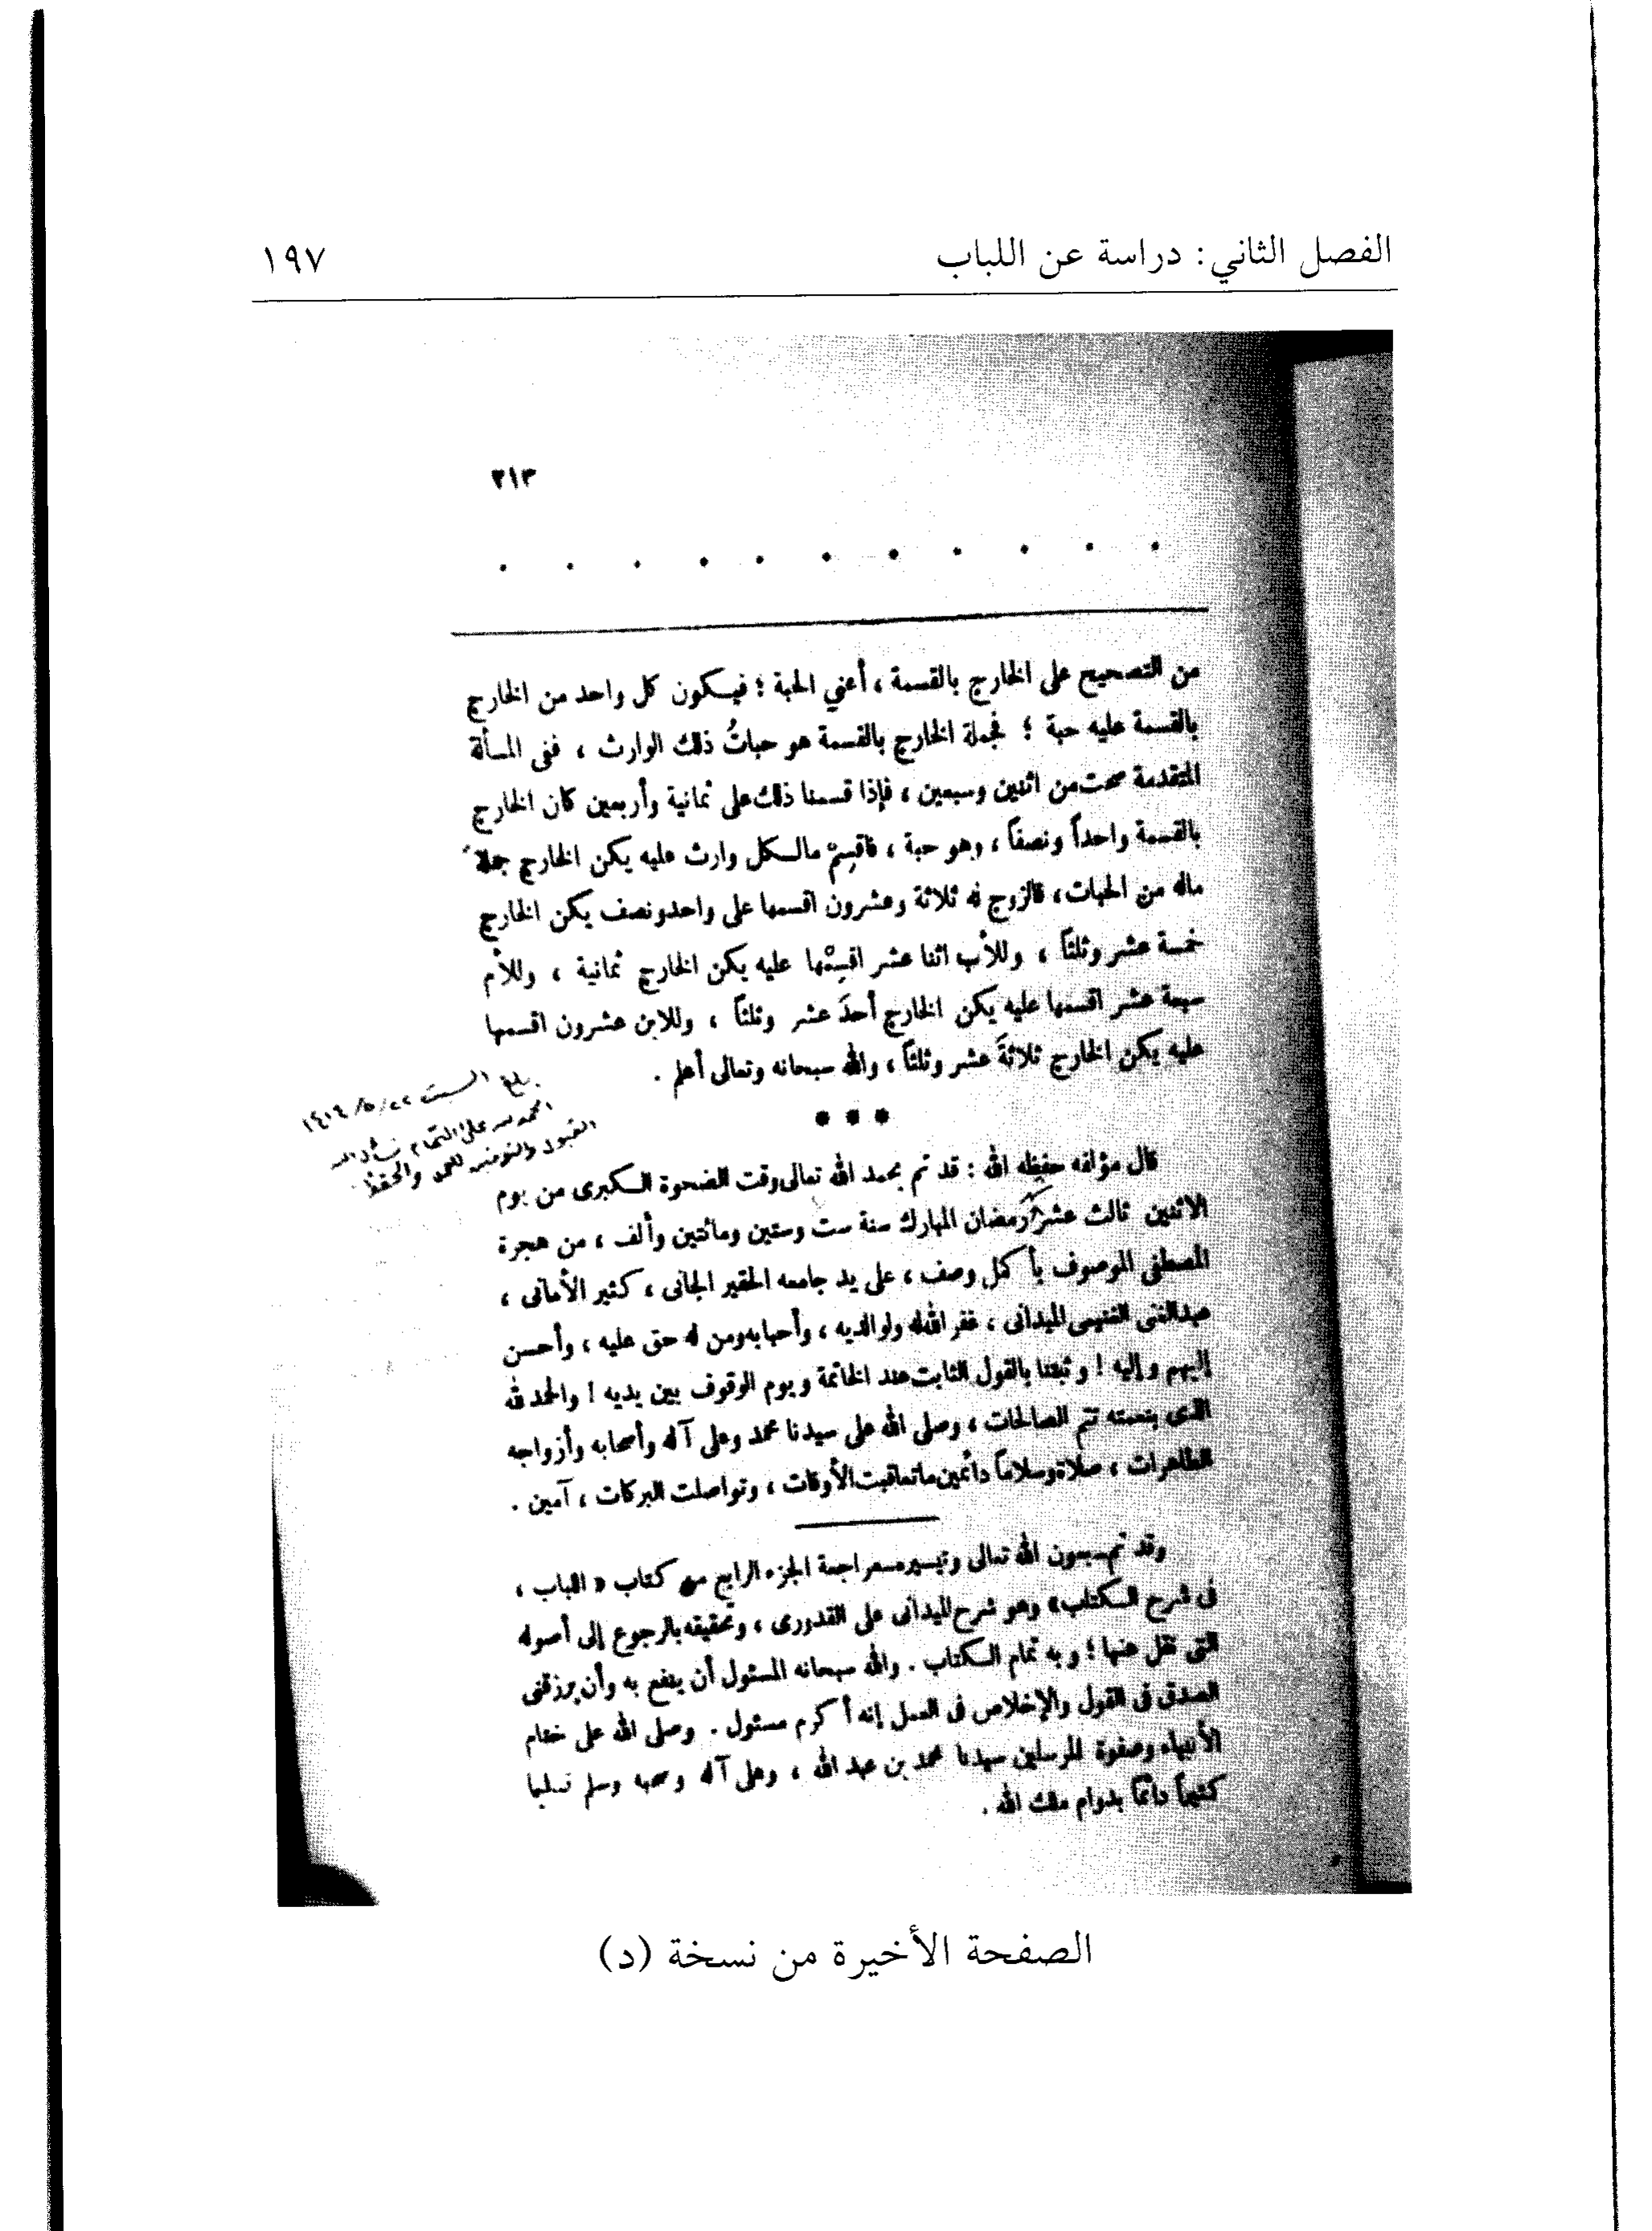 الفصل الثاني: دراسة عن اللباب
١٩٧
٣١٣
من التصحيح على الخارج بالقسمة ، أعني الحبة ؛ فيكون كل واحد من الخارج
بالقسمة عليه حبة ؛ فجملة الخارج بالقسمة هو حباتُ ذلك الوارث ، ففى المسألة
المتقدمة صحت من اثنين وسبعين ، فإذا قسمنا ذلك على ثمانية وأربعين كان الخارج
بالقسمة واحداً ونصفاً ، وهو حبة ، فاقسِمْ مالكل وارث عليه يكن الخارج جملة
ماله من الحبات ، فالزوج له ثلاثة وعشرون اقسمها على واحد ونصف يكن الخارج
خمسة عشر وثلثاً ، وللأب اثنا عشر اقسِمْها عليه يكن الخارج ثمانية ، وللأم
سبعة عشر اقسمها عليه يكن الخارج أحدَ عشر وثلثاً ، وللابن عشرون اقسمها
عليه يكن الخارج ثلاثةَ عشر وثلثاً ، والله سبحانه وتعالى أعلم .
* * *
بلغ السبت ٢٢/٥/١٤١٤
الحمد لله على التمام نسأل الله
القبول والتوفيق للعمل والحفظ
قال مؤلفه حفظه الله : قد تم بحمد الله تعالى وقت الضحوة الكبرى من يوم
الاثنين ثالث عشر رمضان المبارك سنة ست وستين ومائتين وألف ، من هجرة
المصطفى الموصوف بأكمل وصف ، على يد جامعه الحقير الجانى ، كثير الأمانى ،
عبد الغنى الغنيمى الميدانى ، غفر الله له ولوالديه ، وأحبابه ومن له حق عليه ، وأحسن
إليهم وإليه ! وثبتنا بالقول الثابت عند الخاتمة ويوم الوقوف بين يديه ! والحمد لله
الذى بنعمته تتم الصالحات ، وصلى الله على سيدنا محمد وعلى آله وأصحابه وأزواجه
الطاهرات ، صلاة وسلاماً دائمين ما تعاقبت الأوقات ، وتواصلت البركات ، آمين .
وقد تم بعون الله تعالى وتيسيره مراجعة الجزء الرابع من كتاب « اللباب ،
فى شرح الكتاب » وهو شرح الميدانى على القدورى ، وتحقيقه بالرجوع إلى أصوله
التى نقل عنها ؛ وبه تمام الكتاب . والله سبحانه المسئول أن ينفع به وأن يرزقنى
الصدق فى القول والإخلاص فى العمل إنه أكرم مسئول . وصلى الله على ختام
الأنبياء وصفوة المرسلين سيدنا محمد بن عبد الله ، وعلى آله وصحبه وسلم تسليما
كثيراً دائماً بدوام ملك الله .
الصفحة الأخيرة من نسخة (د)